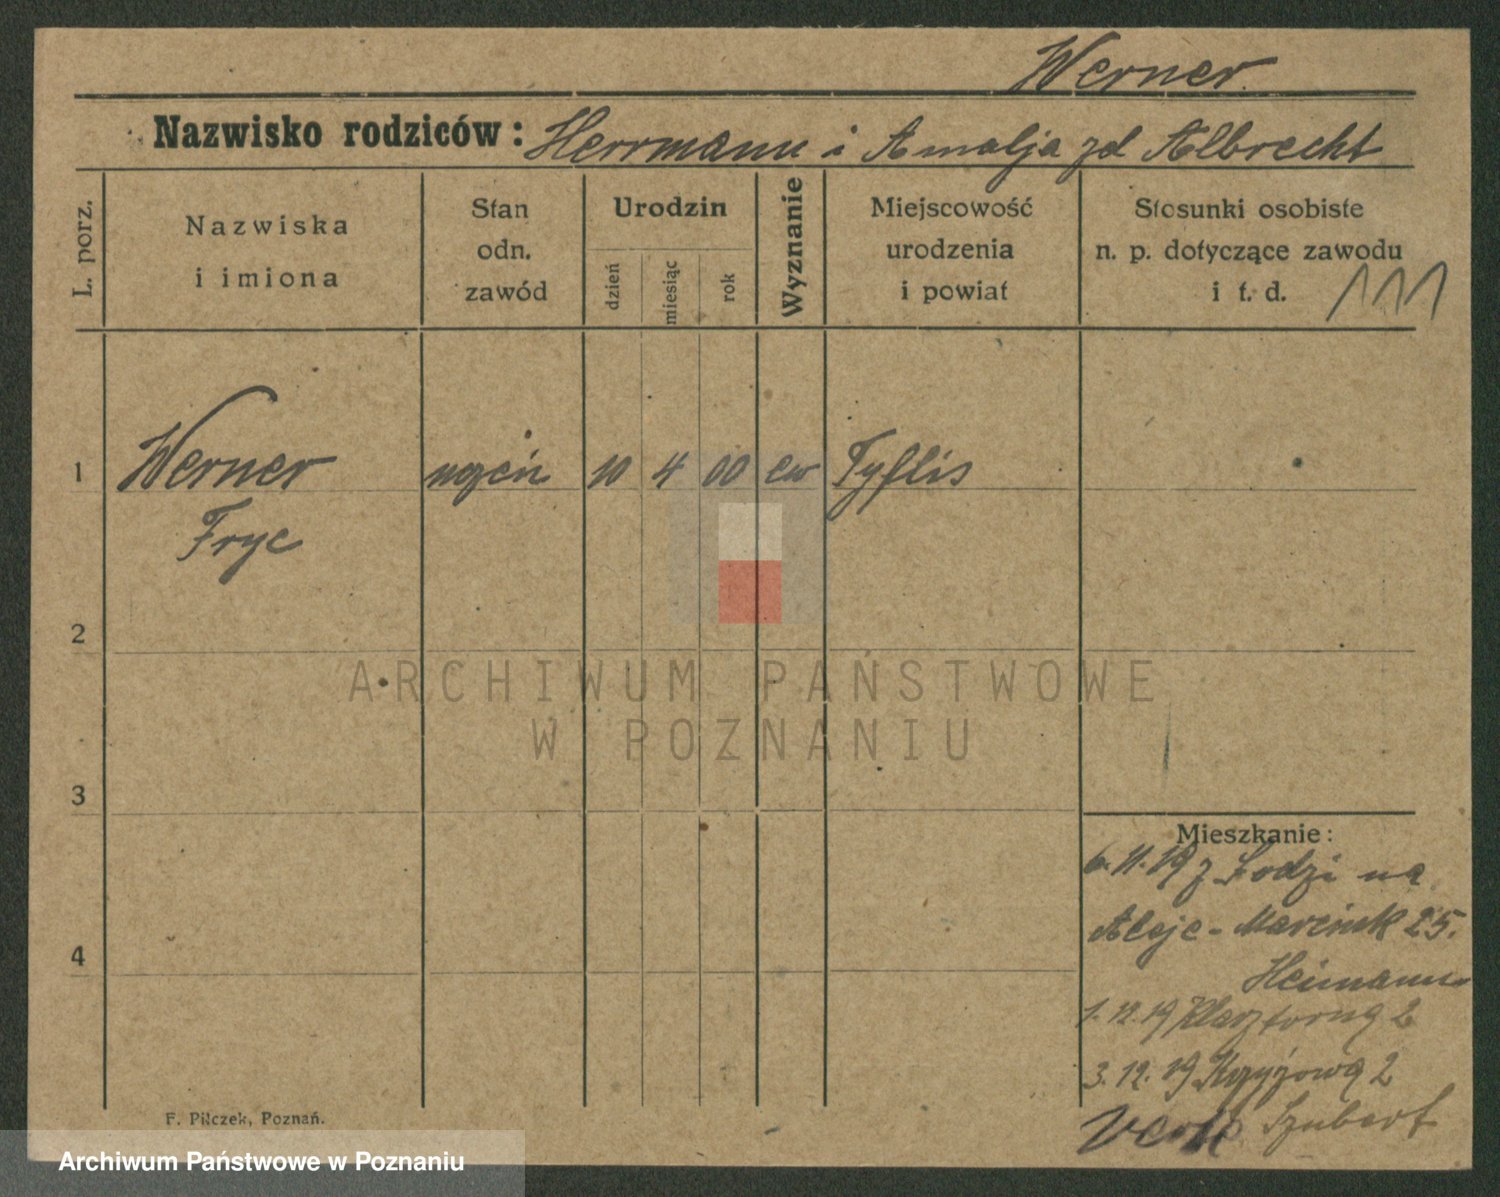 Werner.
Nazwisko rodziców: Herrmann i Amalja zd Albrecht
L. porz.
Nazwiska
i imiona
Stan
odn.
zawód
Urodzin
dzień
miesiąc
rok
Wyznanie
Miejscowość
urodzenia
i powiat
Stosunki osobiste
n. p. dotyczące zawodu
i t. d.
111
1 Werner uczeń 10 4 00 ew Tyflis
Fryc
2
3
4
ARCHIWUM PAŃSTWOWE
W POZNANIU
Mieszkanie:
6.11.19 z Łodzi na
Aleje-Marcink 25.
Heimann
1.12.19 Klasztorną 2
3.12.19 Krzyżową 2
Szubert
F. Pilczek, Poznań.
Archiwum Państwowe w Poznaniu